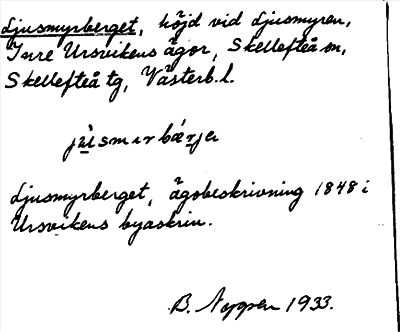 Ljusmyrberget, höjd vid Ljusmyren,
Inre Ursvikens ägor, Skellefteå sn,
Skellefteå tg, Västerb. l.
jù̱smɩrbǽrje
Ljusmyrberget, ägobeskrivning 1848 i
Ursvikens byaskrin.
B. 1933.